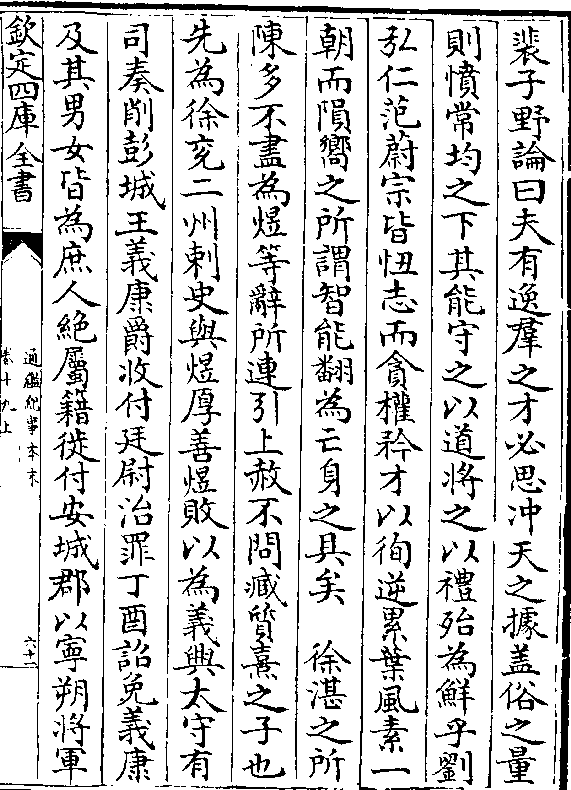 裴子野論曰夫有逸羣之才必思冲天之據盖俗之量
則憤常均之下其能守之以道將之以禮殆為鮮乎劉
弘仁范蔚宗皆忸志而貪權矜才以徇逆累葉風素一
朝而隕嚮之所謂智能翻為亡身之具矣　徐湛之所
陳多不盡為煜等辭所連引上赦不問臧質熹之子也
先為徐兗二州刺史與煜厚善煜敗以為義興太守有
司奏削彭城王義康爵收付廷尉治罪丁酉詔免義康
及其男女皆為庶人絶屬籍徙付安城郡以寧朔將軍
欽定四庫全書
通鑑紀事本末
卷十九上
六十二